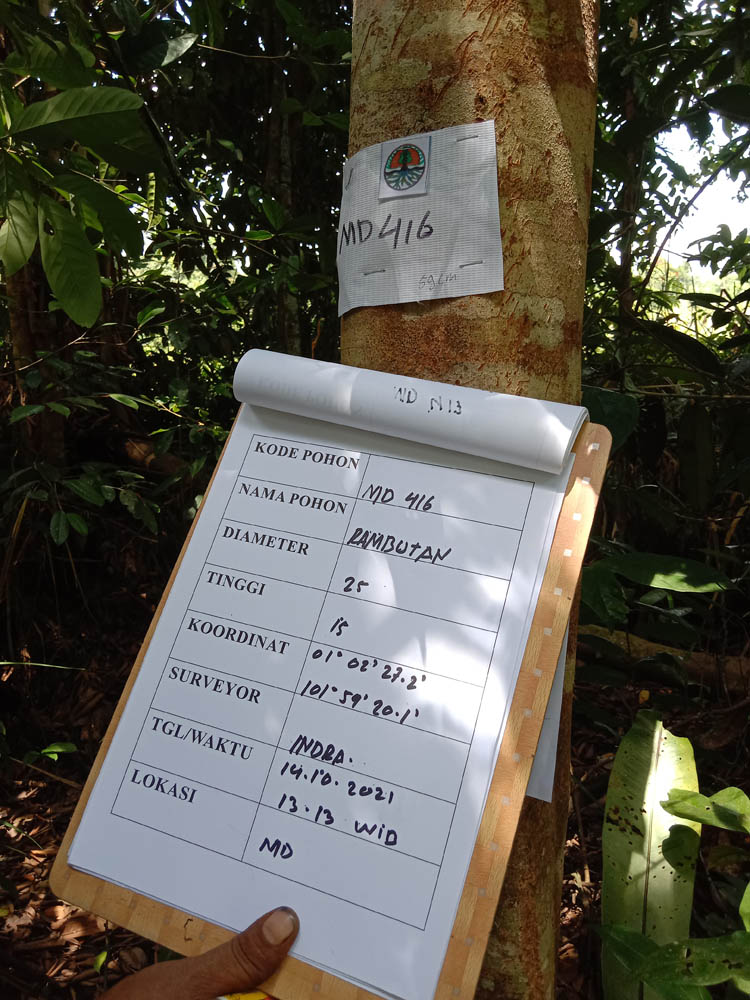 MD 416
59 cm
KODE POHON MD 416
NAMA POHON RAMBUTAN
DIAMETER 25
TINGGI 15
KOORDINAT 01° 02' 27.2'
101° 59' 20.1'
SURVEYOR INDRA.
TGL/WAKTU 14.10.2021
13.13 WID
LOKASI MD